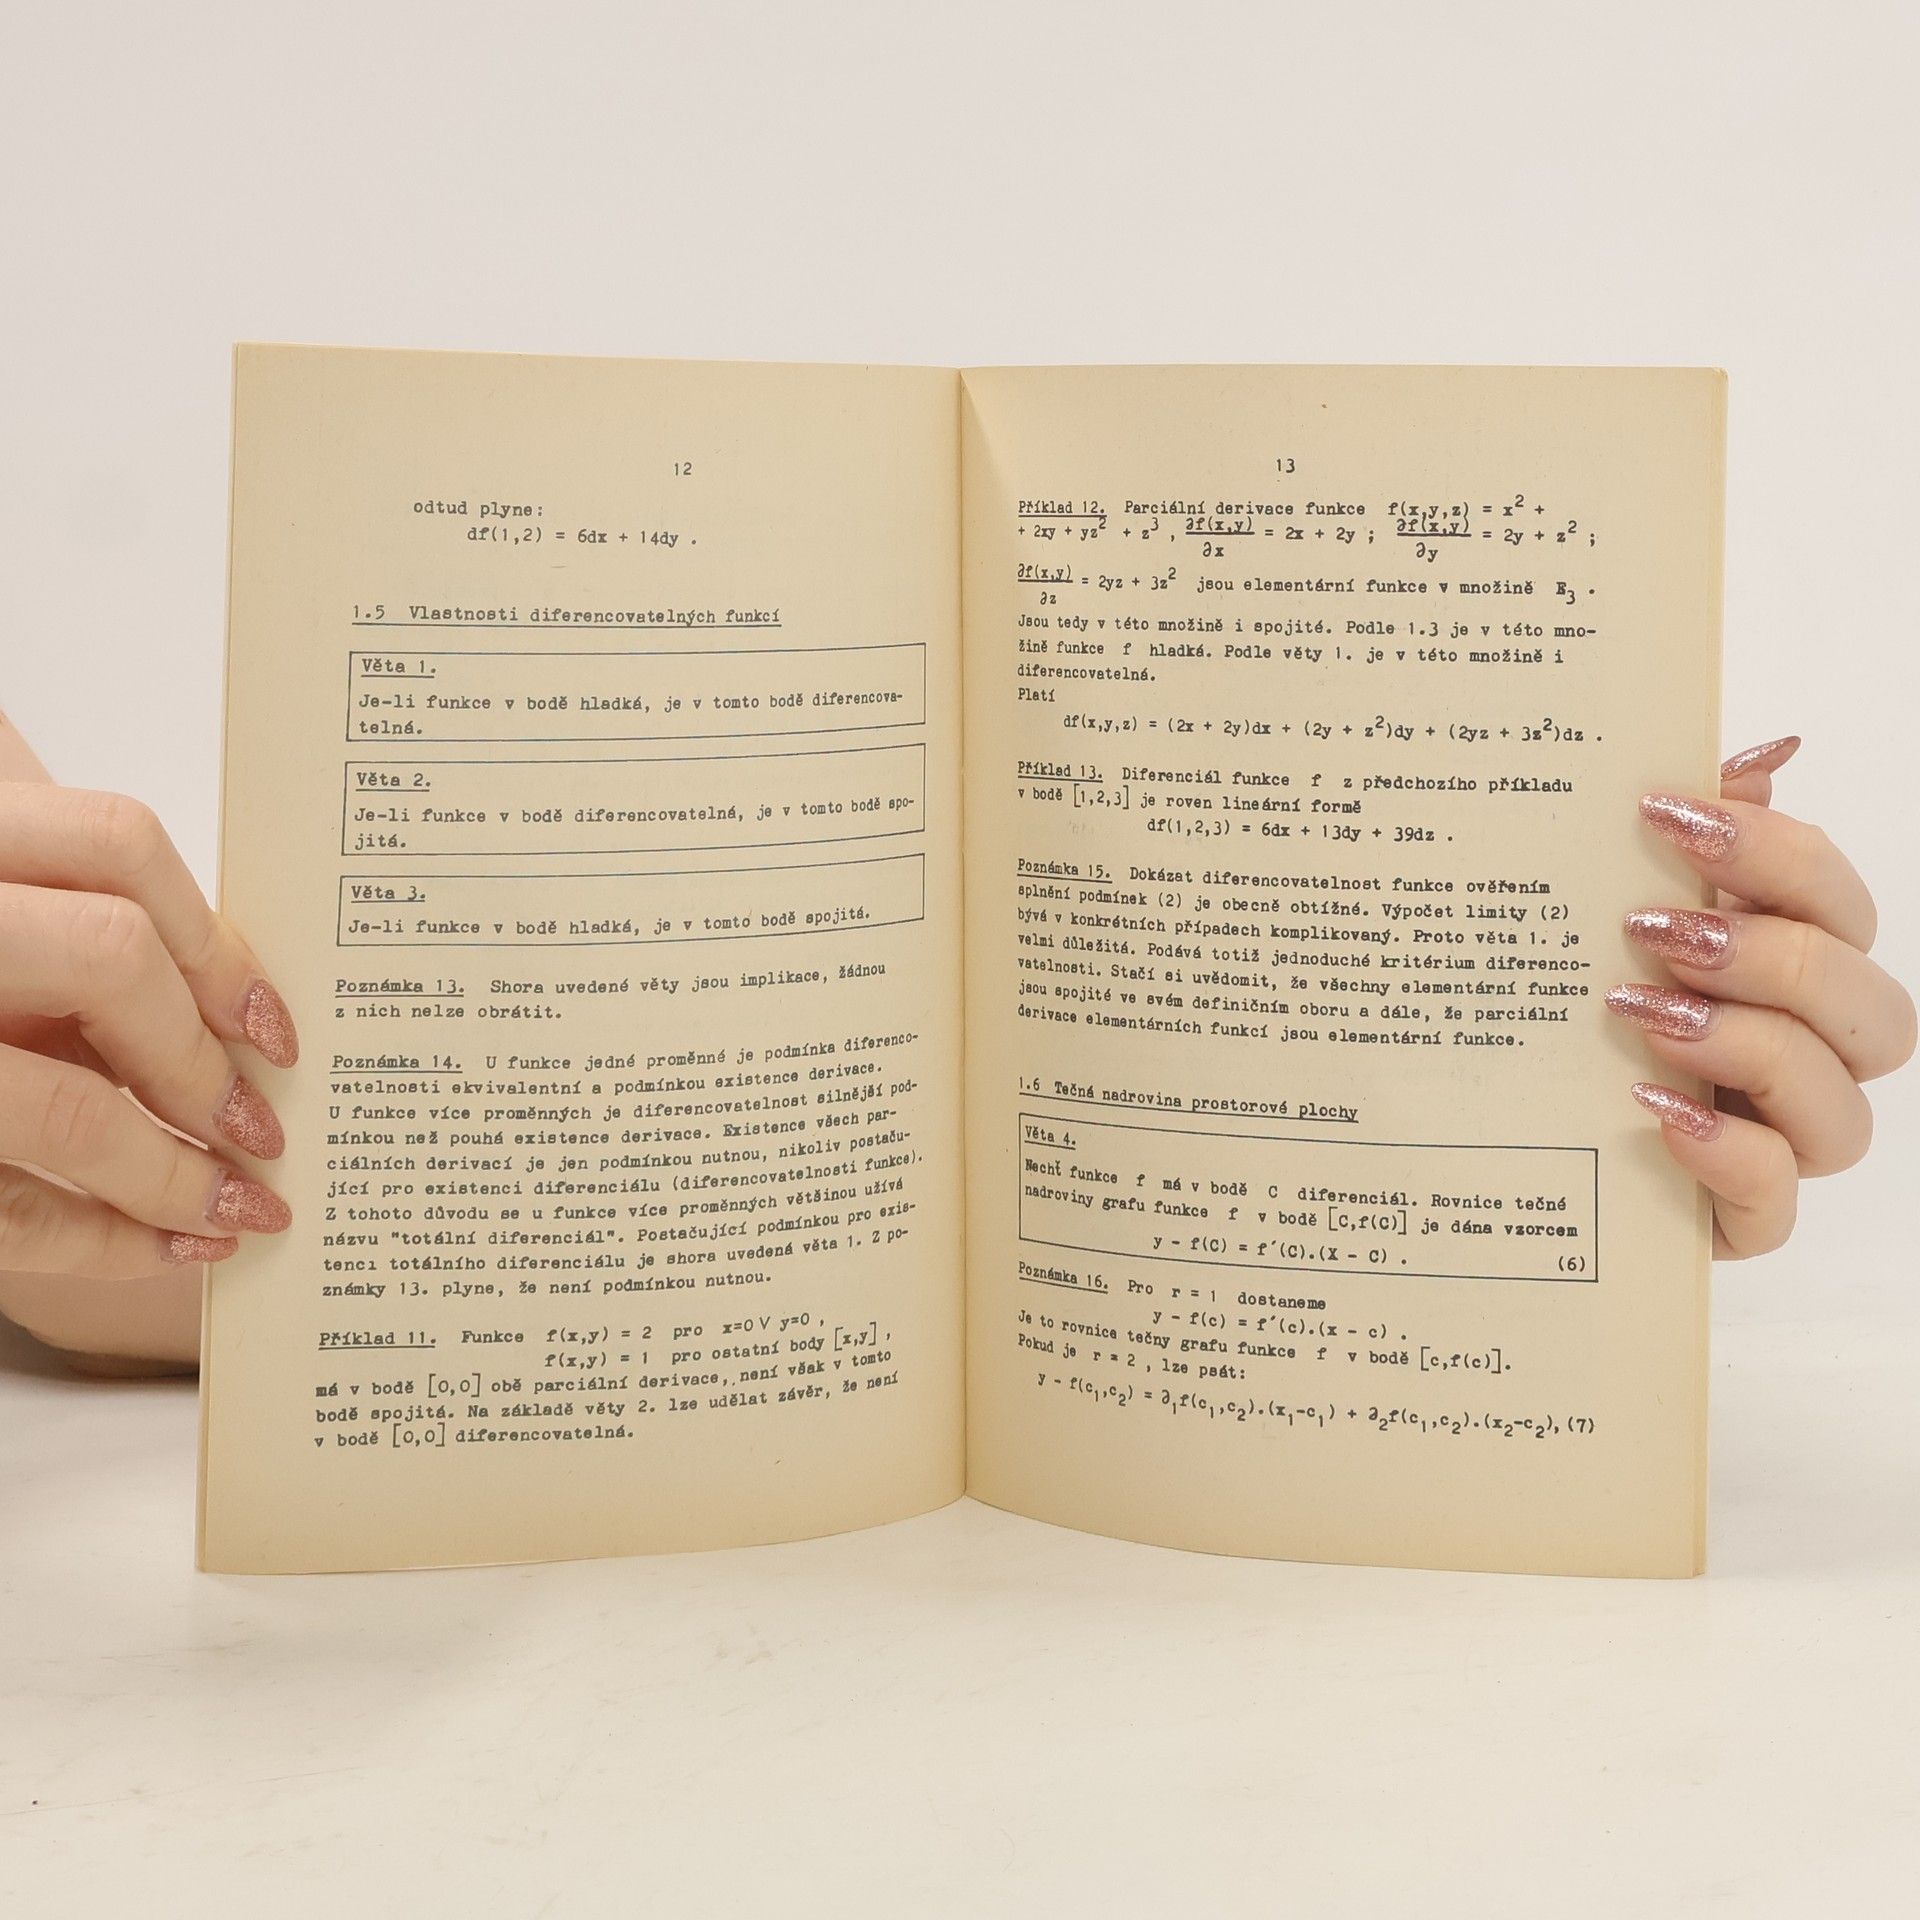 12
odtud plyne:
df(1,2) = 6dx + 14dy .
1.5 Vlastnosti diferencovatelných funkcí
Věta 1.
Je-li funkce v bodě hladká, je v tomto bodě diferencova-
telná.
Věta 2.
Je-li funkce v bodě diferencovatelná, je v tomto bodě spo-
jitá.
Věta 3.
Je-li funkce v bodě hladká, je v tomto bodě spojitá.
Poznámka 13. Shora uvedené věty jsou implikace, žádnou
z nich nelze obrátit.
Poznámka 14. U funkce jedné proměnné je podmínka diferenco-
vatelnosti ekvivalentní a podmínkou existence derivace.
U funkce více proměnných je diferencovatelnost silnější pod-
mínkou než pouhá existence derivace. Existence všech par-
ciálních derivací je jen podmínkou nutnou, nikoliv postaču-
jící pro existenci diferenciálu (diferencovatelnosti funkce).
Z tohoto důvodu se u funkce více proměnných většinou užívá
názvu "totální diferenciál". Postačující podmínkou pro exis-
tenci totálního diferenciálu je shora uvedená věta 1. Z po-
známky 13. plyne, že není podmínkou nutnou.
Příklad 11. Funkce f(x,y) = 2 pro x=0 ∨ y=0 ,
f(x,y) = 1 pro ostatní body [x,y] ,
má v bodě [0,0] obě parciální derivace, není však v tomto
bodě spojitá. Na základě věty 2. lze udělat závěr, že není
v bodě [0,0] diferencovatelná.
13
Příklad 12. Parciální derivace funkce f(x,y,z) = x² +
+ 2xy + yz² + z³ , ∂f(x,y)/∂x = 2x + 2y ; ∂f(x,y)/∂y = 2y + z² ;
∂f(x,y)/∂z = 2yz + 3z² jsou elementární funkce v množině E₃ .
Jsou tedy v této množině i spojité. Podle 1.3 je v této mno-
žině funkce f hladká. Podle věty 1. je v této množině i
diferencovatelná.
Platí
df(x,y,z) = (2x + 2y)dx + (2y + z²)dy + (2yz + 3z²)dz .
Příklad 13. Diferenciál funkce f z předchozího příkladu
v bodě [1,2,3] je roven lineární formě
df(1,2,3) = 6dx + 13dy + 39dz .
Poznámka 15. Dokázat diferencovatelnost funkce ověřením
splnění podmínek (2) je obecně obtížné. Výpočet limity (2)
bývá v konkrétních případech komplikovaný. Proto věta 1. je
velmi důležitá. Podává totiž jednoduché kritérium diferenco-
vatelnosti. Stačí si uvědomit, že všechny elementární funkce
jsou spojité ve svém definičním oboru a dále, že parciální
derivace elementárních funkcí jsou elementární funkce.
1.6 Tečná nadrovina prostorové plochy
Věta 4.
Nechť funkce f má v bodě C diferenciál. Rovnice tečné
nadroviny grafu funkce f v bodě [C,f(C)] je dána vzorcem
y - f(C) = f´(C).(X - C) . (6)
Poznámka 16. Pro r = 1 dostaneme
y - f(c) = f´(c).(x - c) .
Je to rovnice tečny grafu funkce f v bodě [c,f(c)].
Pokud je r = 2 , lze psát:
y - f(c₁,c₂) = ∂₁f(c₁,c₂).(x₁-c₁) + ∂₂f(c₁,c₂).(x₂-c₂), (7)